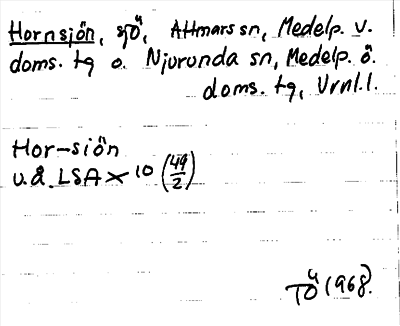 Hornsjön, sjö, Attmars sn, Medelp. v.
doms. tg o. Njurunda sn, Medelp. ö.
doms. tg, Vrnl.l.
Hor-siön
u.å. LSA X 10 (49/2)
TÖ 1968.